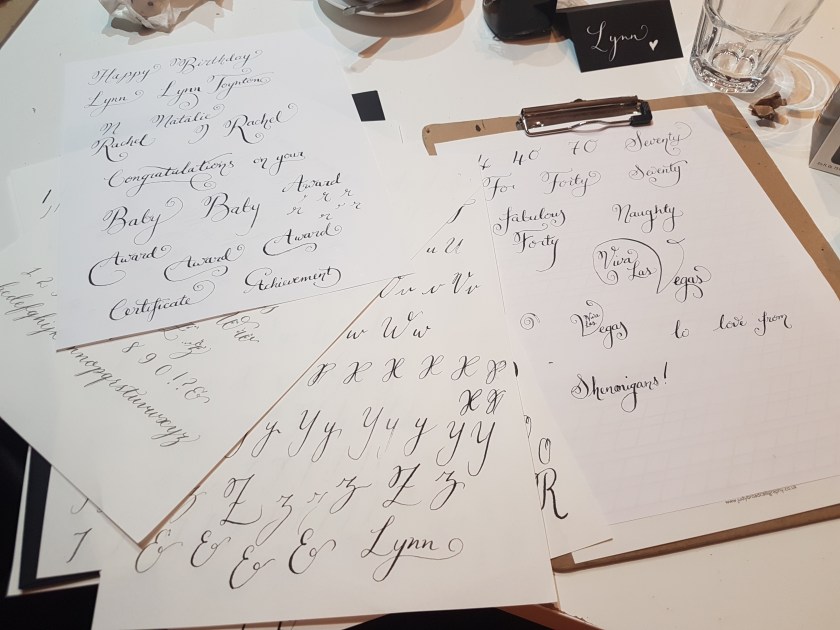 Happy Birthday
Lynn Lynn Toynton
N Natalie
Rachel Rachel
Congratulations on your
Baby Baby Award
r r r
r r
Award Award Award
Certificate Achievement
Lynn
4 40 70 Seventy
For Forty Seventy
Fabulous Naughty
Forty
Viva Las Vegas
Viva Las Vegas to love from
Shenanigans!
u U
v v Vv
w Ww
x X X X X x
X X
y Yy Yy y y y
Z z z z Z z
& & & & Lynn
1 2 3
bcdefghij
8 9 0 ! ? &
nopqrstuvwxyz
O
R